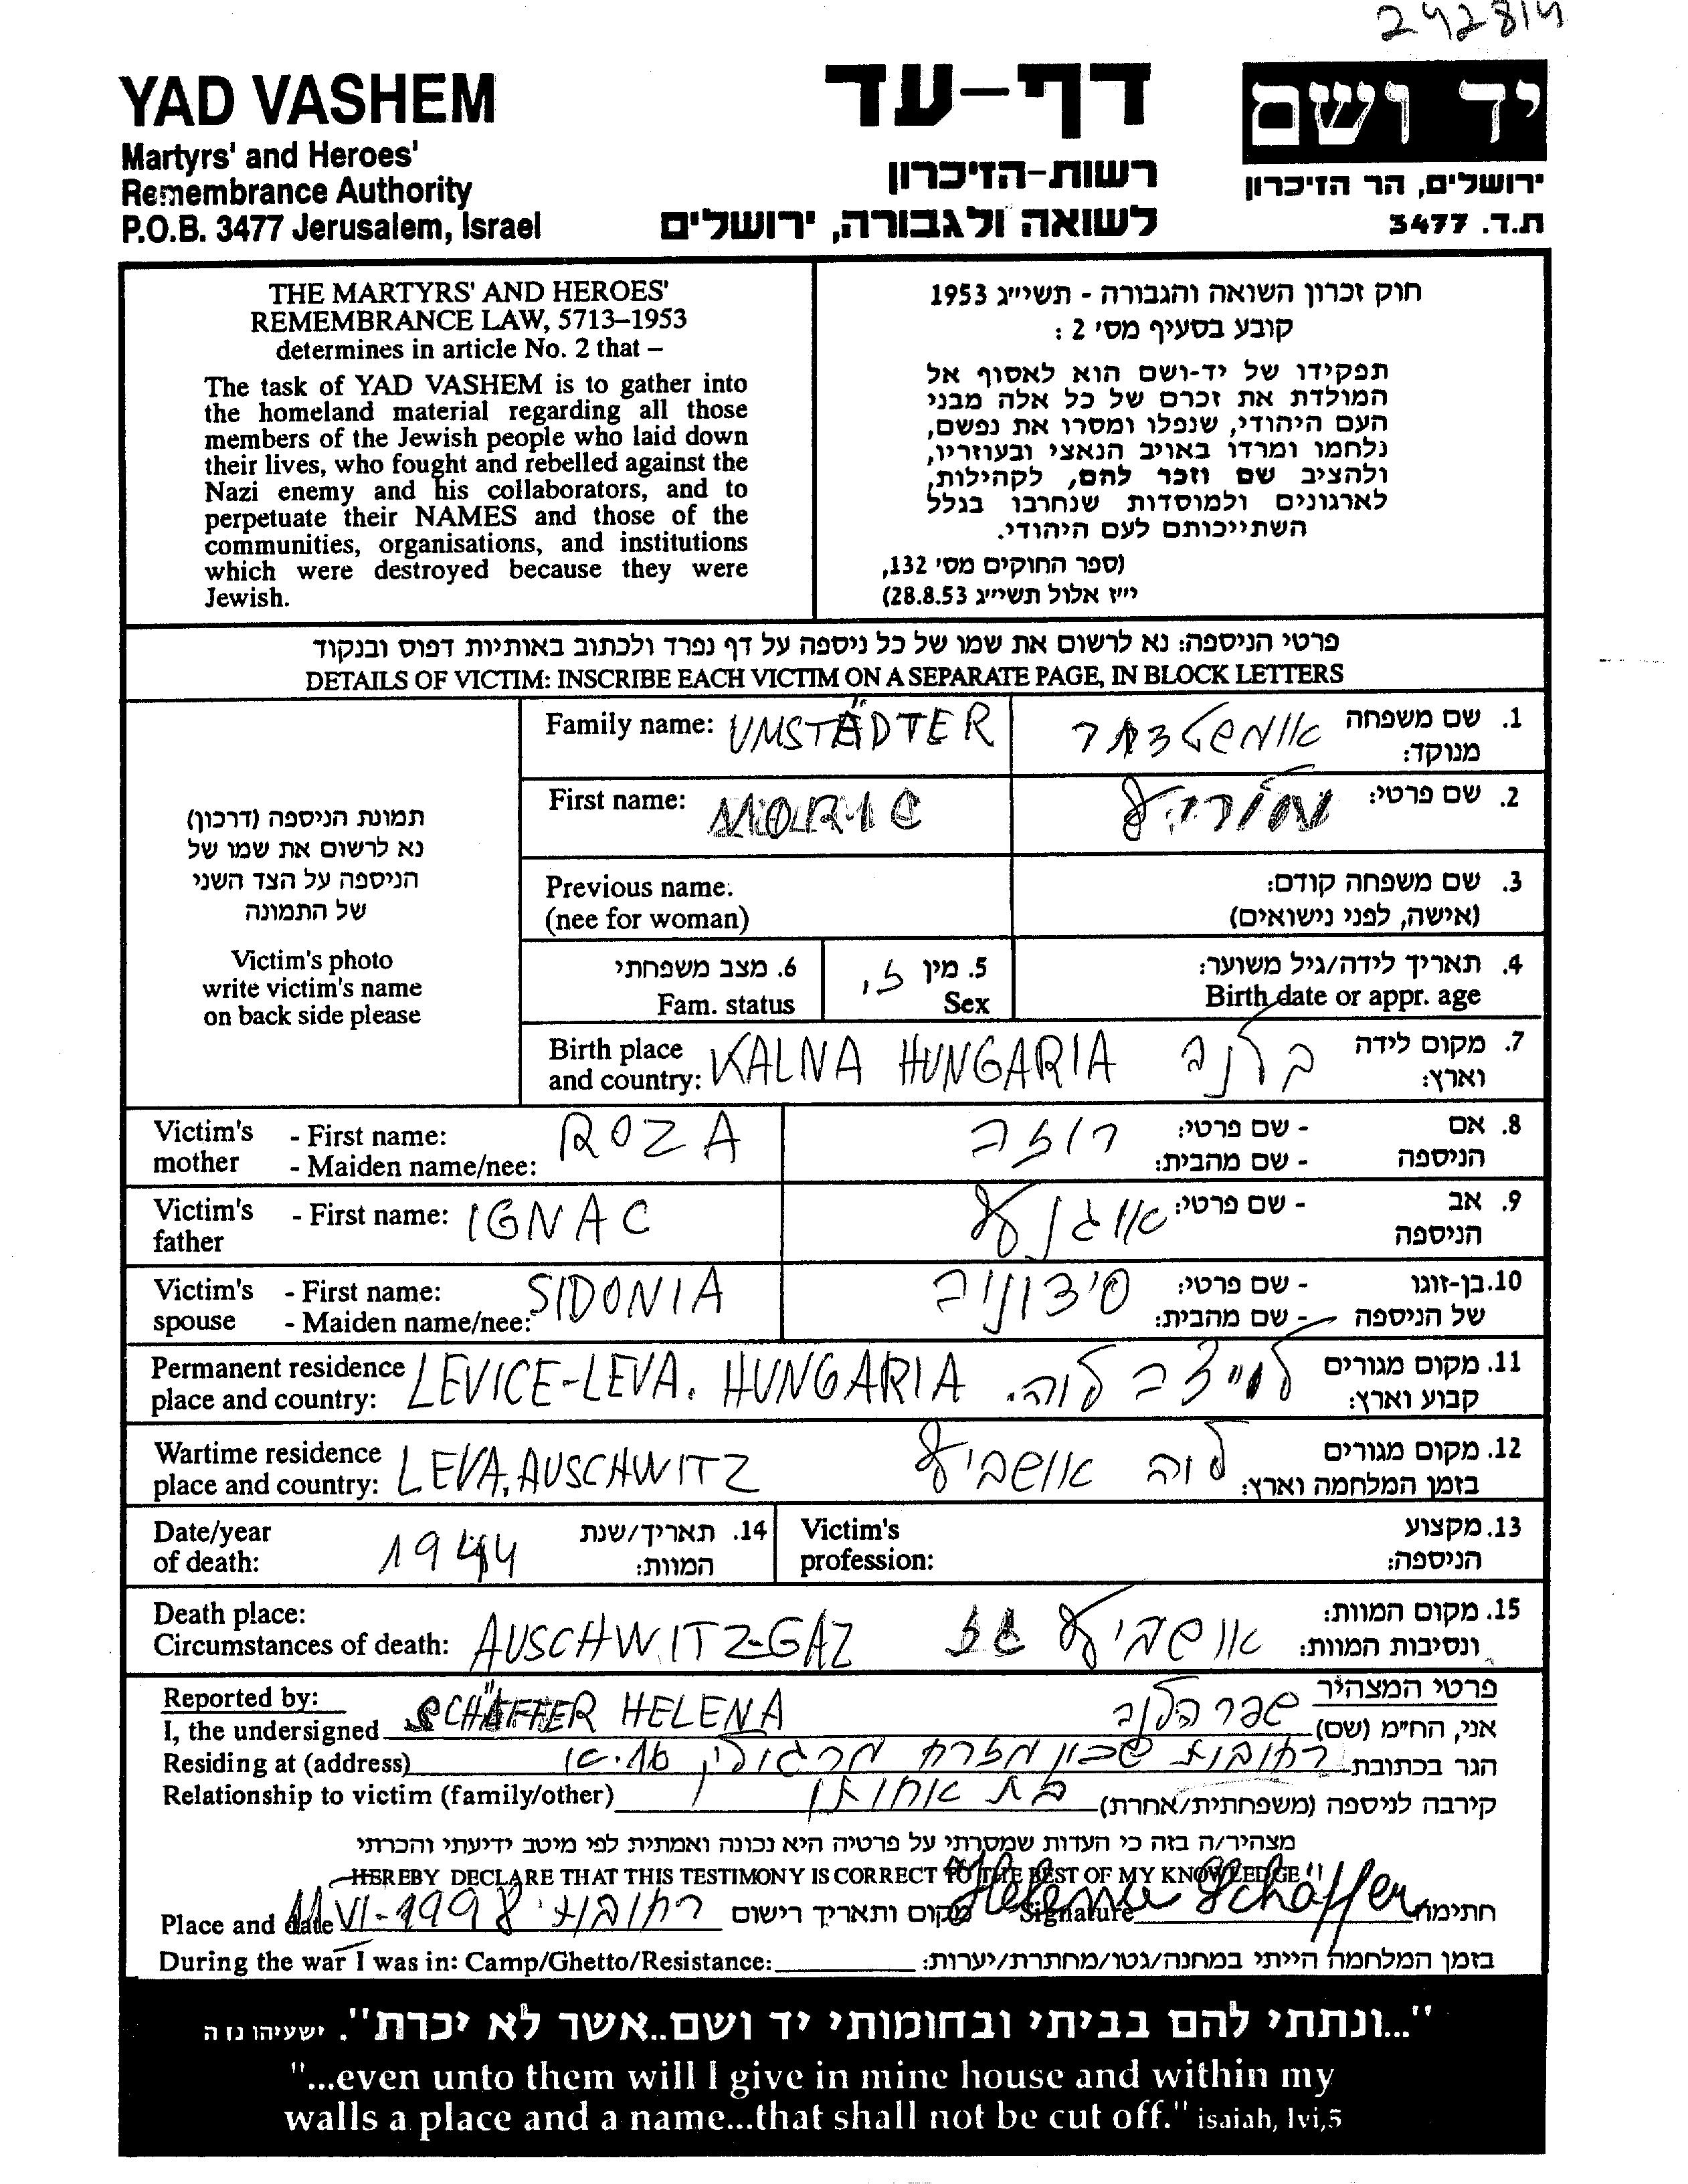 242814
YAD VASHEM
Martyrs' and Heroes'
Remembrance Authority
P.O.B. 3477 Jerusalem, Israel
דף-עד
רשות-הזיכרון
לשואה ולגבורה, ירושלים
יד ושם
ירושלים, הר הזיכרון
ת.ד. 3477
THE MARTYRS' AND HEROES'
REMEMBRANCE LAW, 5713–1953
determines in article No. 2 that –
The task of YAD VASHEM is to gather into
the homeland material regarding all those
members of the Jewish people who laid down
their lives, who fought and rebelled against the
Nazi enemy and his collaborators, and to
perpetuate their NAMES and those of the
communities, organisations, and institutions
which were destroyed because they were
Jewish.
חוק זכרון השואה והגבורה - תשי״ג 1953
קובע בסעיף מס' 2 :
תפקידו של יד-ושם הוא לאסוף אל
המולדת את זכרם של כל אלה מבני
העם היהודי, שנפלו ומסרו את נפשם,
נלחמו ומרדו באויב הנאצי ובעוזריו,
ולהציב שם וזכר להם, לקהילות,
לארגונים ולמוסדות שנחרבו בגלל
השתייכותם לעם היהודי.
(ספר החוקים מס' 132,
י״ז אלול תשי״ג 28.8.53)
פרטי הניספה: נא לרשום את שמו של כל ניספה על דף נפרד ולכתוב באותיות דפוס ובנקוד
DETAILS OF VICTIM: INSCRIBE EACH VICTIM ON A SEPARATE PAGE, IN BLOCK LETTERS
תמונת הניספה (דרכון)
נא לרשום את שמו של
הניספה על הצד השני
של התמונה
Victim's photo
write victim's name
on back side please
Family name: UMSTÄDTER אומשטדתר 1. שם משפחה
מנוקד:
First name: MORIC מוריץ 2. שם פרטי:
Previous name: 3. שם משפחה קודם:
(nee for woman) (אישה, לפני נישואים)
6. מצב משפחתי 5. מין ז. 4. תאריך לידה/גיל משוער:
Fam. status Sex Birth date or appr. age
Birth place KALNA HUNGARIA קלנה 7. מקום לידה
and country: וארץ:
Victim's - First name: ROZA רוזה - שם פרטי: 8. אם
mother - Maiden name/nee: - שם מהבית: הניספה
Victim's - First name: IGNAC איגנץ - שם פרטי: 9. אב
father הניספה
Victim's - First name: SIDONIA סידוניה - שם פרטי: 10. בן-זוגו
spouse - Maiden name/nee: - שם מהבית: של הניספה
Permanent residence LEVICE-LEVA. HUNGARIA לוה. 11. מקום מגורים
place and country: קבוע וארץ:
Wartime residence LEVA, AUSCHWITZ לוה אושביץ 12. מקום מגורים
place and country: בזמן המלחמה וארץ:
Date/year 1944 14. תאריך/שנת Victim's 13. מקצוע
of death: המוות: profession: הניספה:
Death place: 15. מקום המוות:
Circumstances of death: AUSCHWITZ-GAZ אושביץ גז ונסיבות המוות:
Reported by: פרטי המצהיר
I, the undersigned SCHÄFFER HELENA שפר הלנה אני, הח״מ (שם)
Residing at (address) רחובות שכון מזרח מרגולין 16.א הגר בכתובת
Relationship to victim (family/other) בת אחותו קירבה לניספה (משפחתית/אחרת)
מצהיר/ה בזה כי העדות שמסרתי על פרטיה היא נכונה ואמתית לפי מיטב ידיעתי והכרתי
HEREBY DECLARE THAT THIS TESTIMONY IS CORRECT TO THE BEST OF MY KNOWLEDGE
Place and date 11 VI-1998 רחובות מקום ותאריך רישום Signature Helena Schäffer חתימה
During the war I was in: Camp/Ghetto/Resistance: בזמן המלחמה הייתי במחנה/גטו/מחתרת/יערות:
"...ונתתי להם בביתי ובחומותי יד ושם..אשר לא יכרת". ישעיהו נז ה
"...even unto them will I give in mine house and within my
walls a place and a name...that shall not be cut off." isaiah, lvi,5